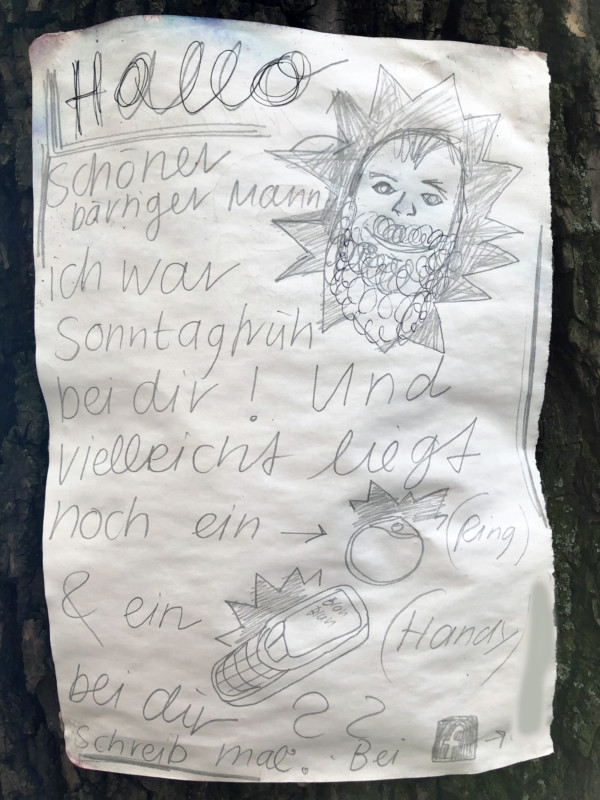 Hallo
Schöner
bärtiger Mann
ich war
Sonntagfrüh
bei dir! Und
vielleicht liegt
noch ein → (Ring)
& ein (Handy)
bei dir ??
Schreib mal. Bei f →